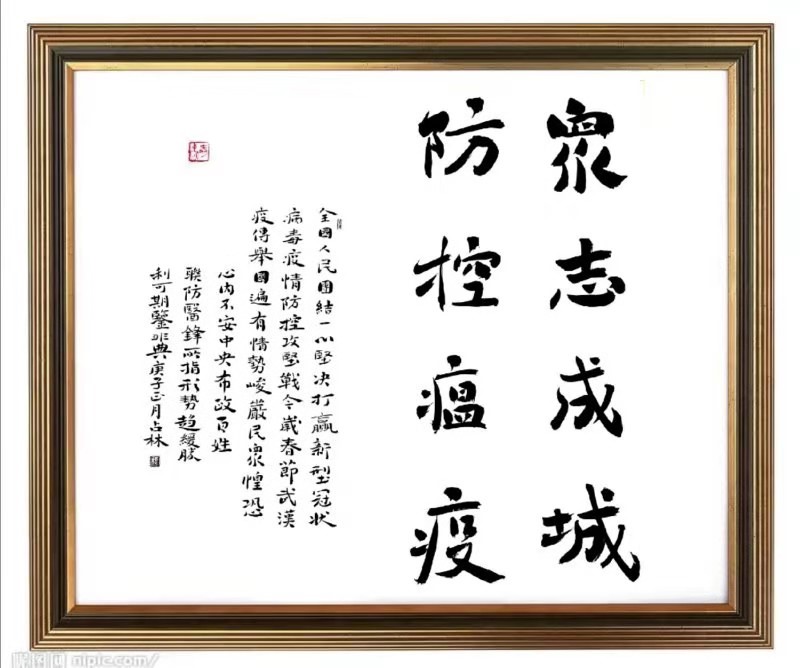 眾志成城
防控瘟疫
全國人民團結一心堅决打贏新型冠状
病毒疫情防控攻堅戰今歲春節武漢
疫傳舉國遍有情勢峻嚴民眾惶恐
心内不安中央布政百姓
聯防醫鋒所指形勢趋緩勝
利可期鑒非典庚子正月占林
昵图网 nipic.com/